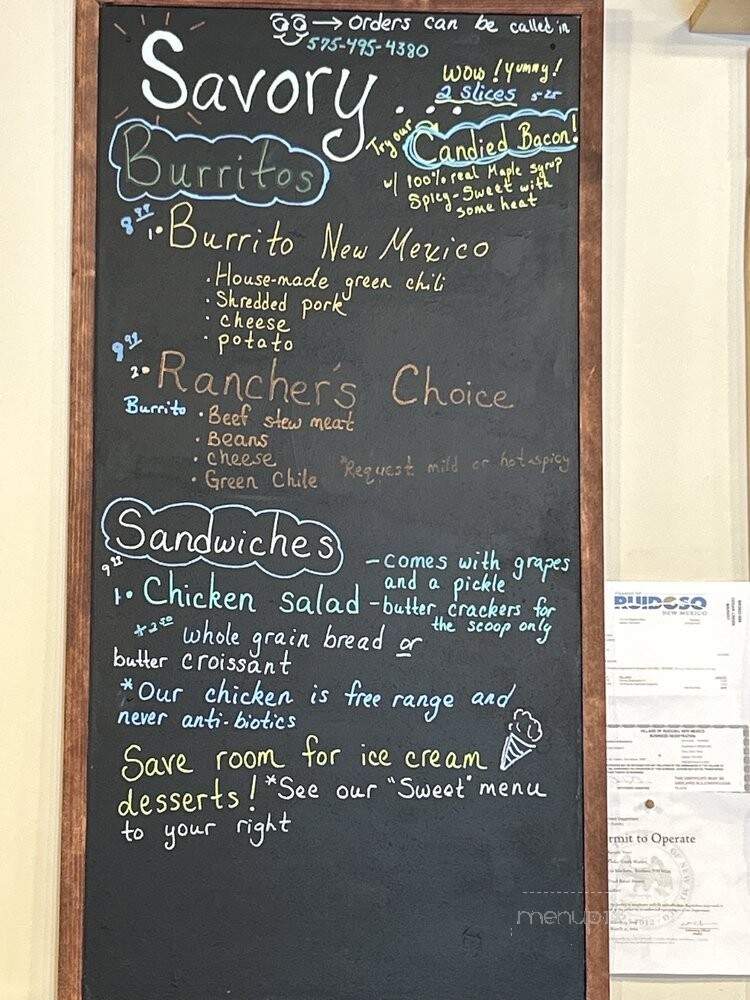 → orders can be called in
575-495-4380
Savory....
WOW! Yummy!
2 slices 5.25
Try our Candied Bacon!
w/ 100% real Maple syrup
Spicy-Sweet with
some heat
Burritos
8.99
1. Burrito New Mexico
· House-made green chili
· Shredded pork
· cheese
· potato
9.99
2. Rancher's Choice
Burrito · Beef stew meat
· Beans
· cheese *Request mild or hot-spicy
· Green Chile
Sandwiches
- comes with grapes
and a pickle
1. Chicken salad - butter crackers for
the scoop only
+2.50 whole grain bread or
butter croissant
*Our chicken is free range and
never anti-biotics
Save room for ice cream
desserts! *See our "Sweet" menu
to your right
RUIDOSO
NEW MEXICO
VILLAGE OF RUIDOSO, NEW MEXICO
BUSINESS REGISTRATION
rmit to Operate
menupi